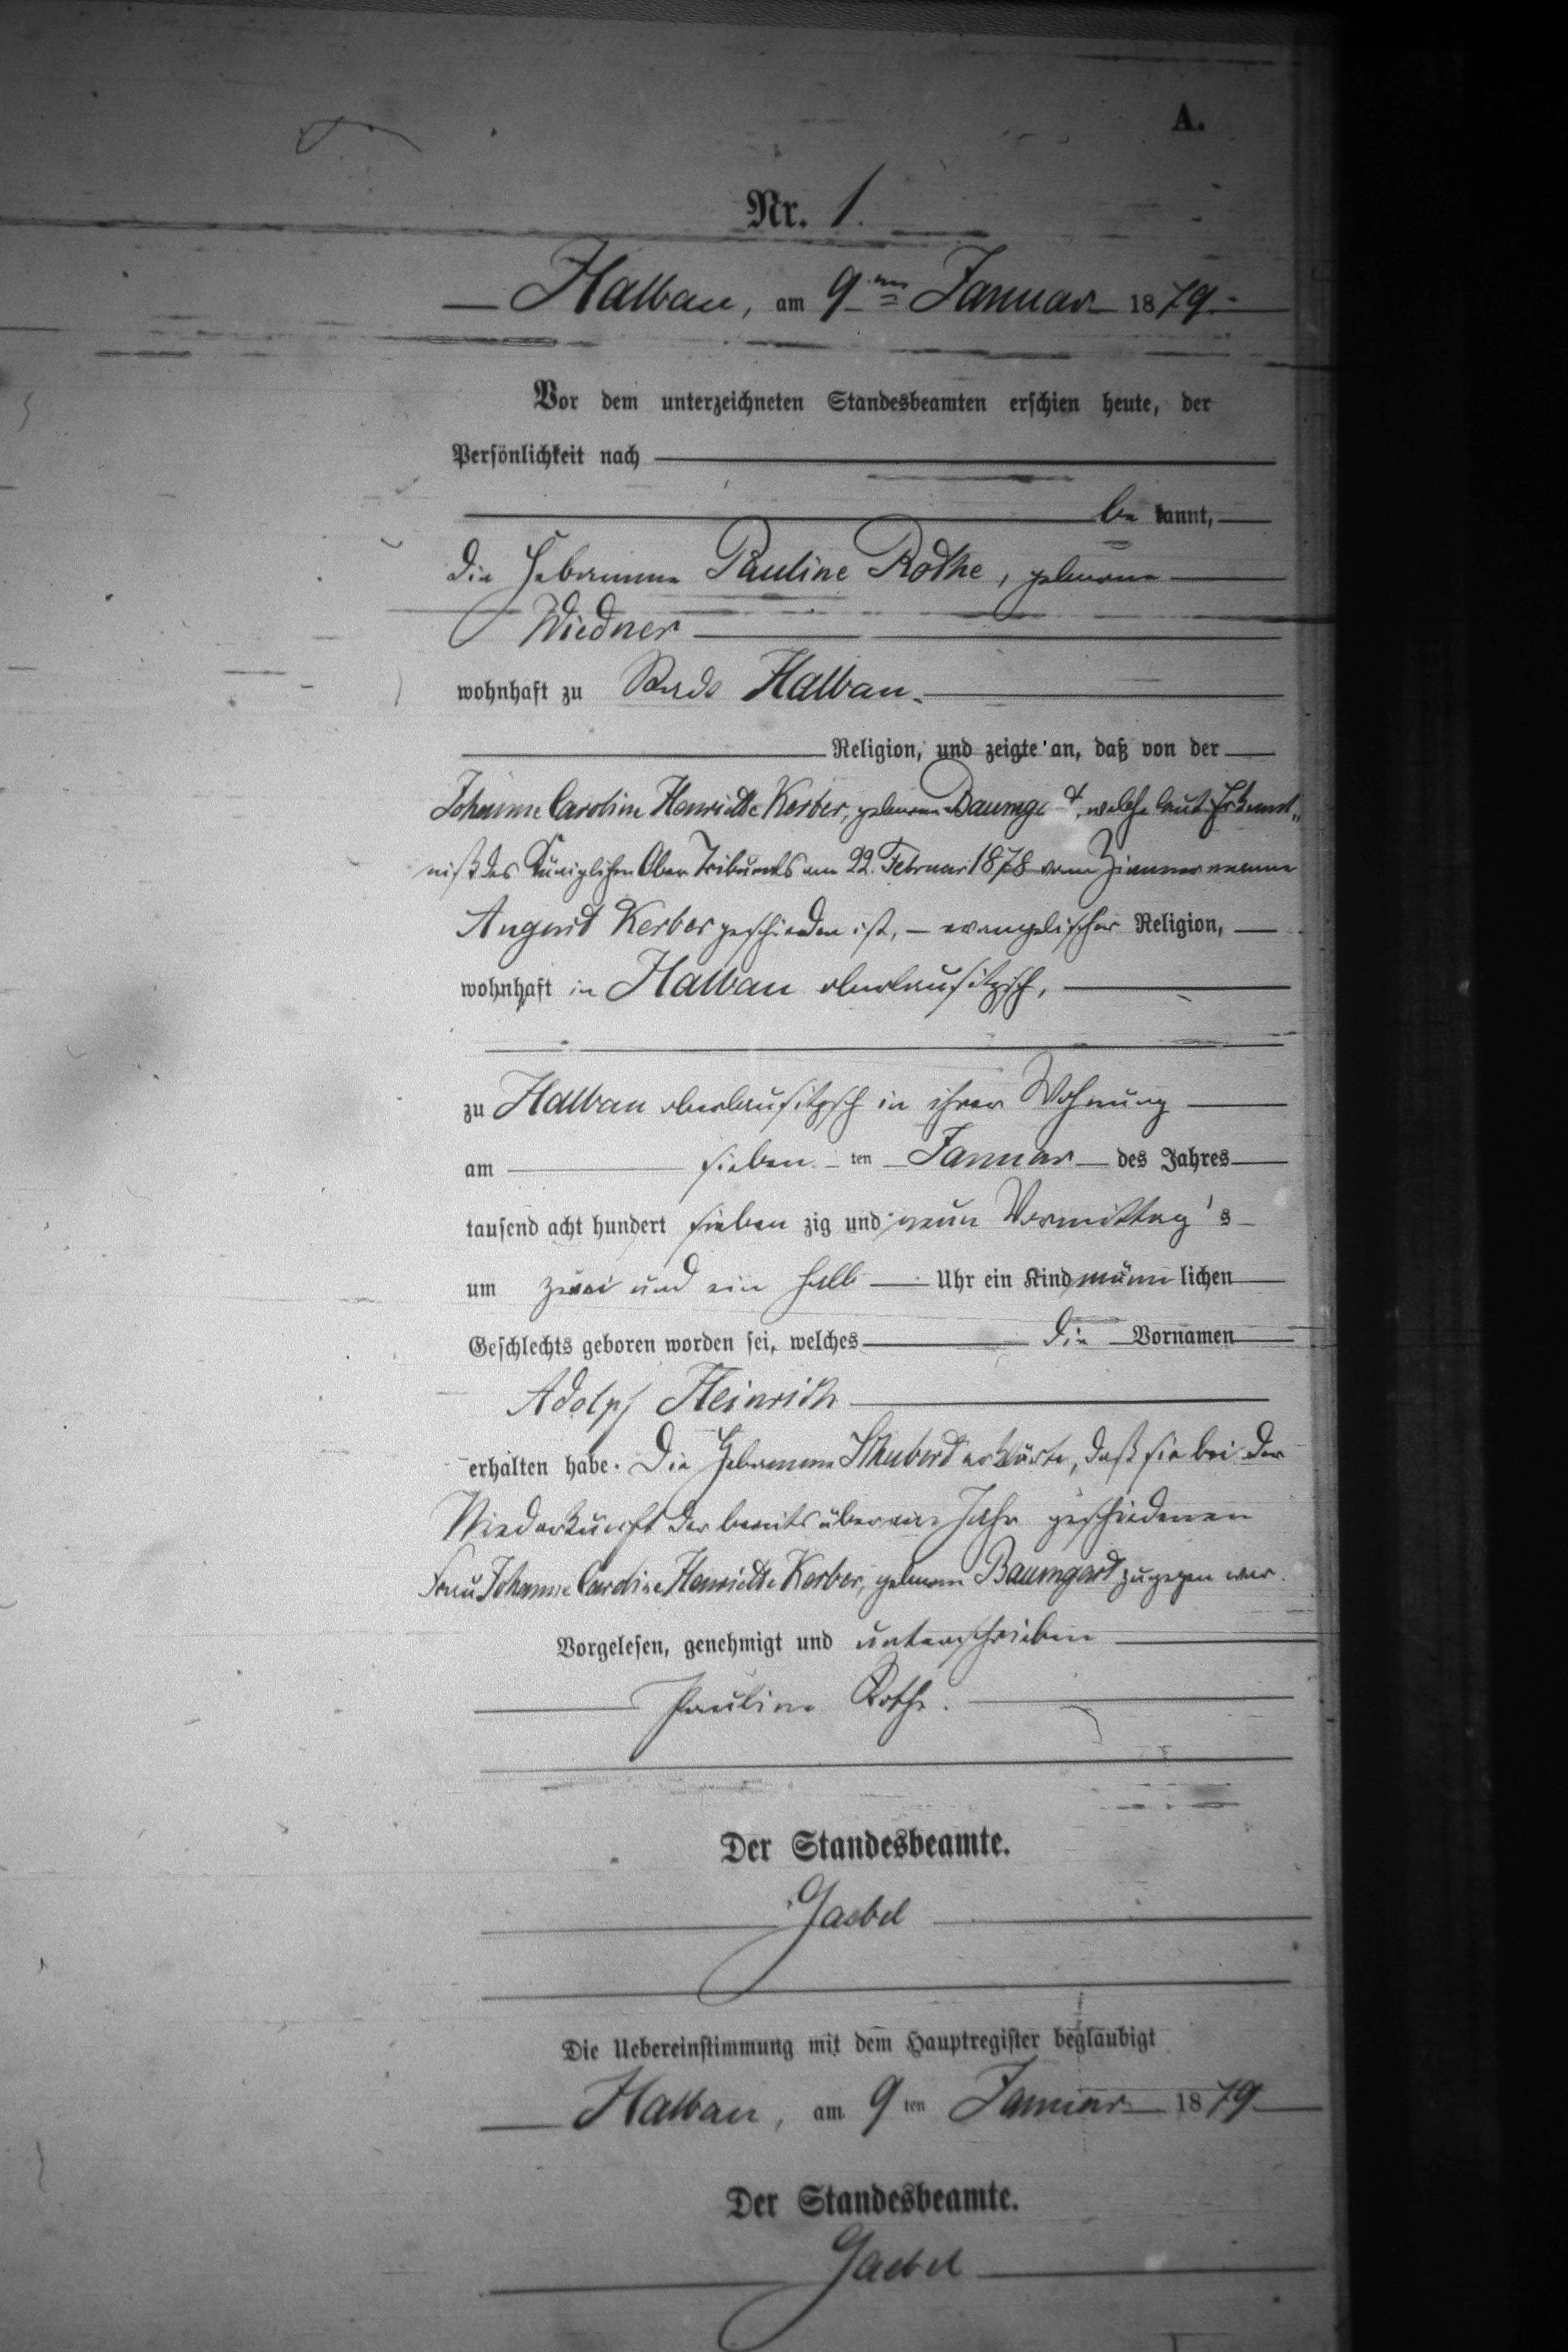 A.
Nr. 1.
Halbau, am 9ten Januar 1879.
Vor dem unterzeichneten Standesbeamten erschien heute, der
Persönlichkeit nach
be kannt,
die Hebamme Pauline Rothe, geborene
Wiedner
wohnhaft zu Halbau.
Religion, und zeigte an, daß von der
Johanne Caroline Henriette Kerber, geborene, welche laut Erkennt„
niß des Königlichen Ober Tribunals am 22. Februar 1878 vom Zimmermann
August Kerber geschieden ist, – evangelischer Religion,
wohnhaft in Halbau oberlausitzsch,
zu Halbau oberlausitzsch in ihrer Wohnung
am sieben ten Januar des Jahres
tausend acht hundert sieben zig und neun Vormittag's
um zwei und ein halb Uhr ein Kind männ lichen
Geschlechts geboren worden sei, welches die Vornamen
Adolph Heinrich
erhalten habe. Die Hebamme erklärte, daß sie bei der
Niederkunft der bereits über ein Jahr geschiedenen
Frau Johanne Caroline Henriette Kerber, geborene Baumgart zugegen war.
Vorgelesen, genehmigt und unterschrieben
Pauline Rothe.
Der Standesbeamte.
Jaebel
Die Uebereinstimmung mit dem Hauptregister beglaubigt
Halbau, am 9ten Januar 1879
Der Standesbeamte.
Jaebel